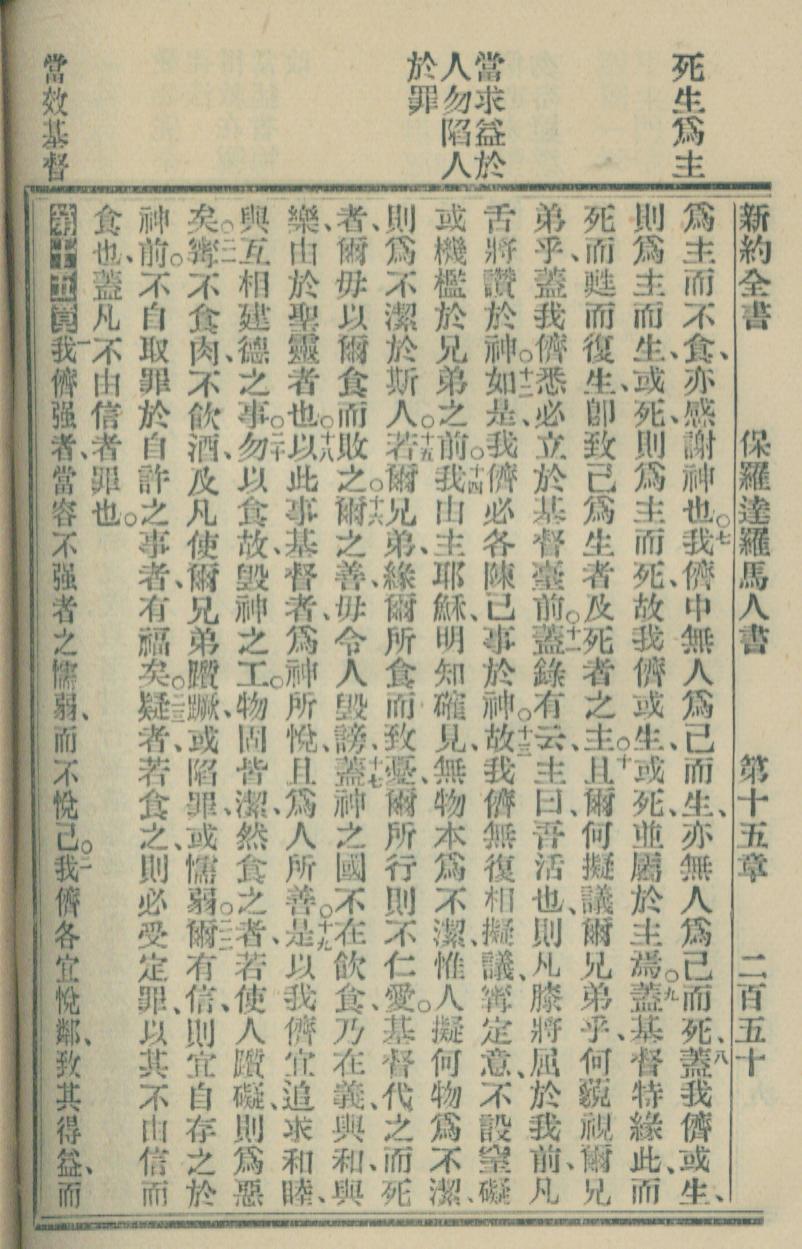 死生爲主
當求益於
人勿陷人
於罪
當效基督
新約全書 保羅達羅馬人書 第十五章 二百五十
爲主而不食、亦感謝神也。七我儕中無人爲己而生、亦無人爲己而死、八蓋我儕或生、
則爲主而生、或死、則爲主而死、故我儕或生、或死、並屬於主焉。九蓋基督特緣此而
死而甦而復生、卽致己爲生者及死者之主。十且爾何擬議爾兄弟乎、何藐視爾兄
弟乎、蓋我儕悉必立於基督臺前。十一蓋錄有云、主曰、吾活也、則凡膝將屈於我前、凡
舌將讚於神。十二如是、我儕必各陳己事於神。十三故我儕無復相擬議、寧定意、不設窒礙
或機檻於兄弟之前。十四我由主耶穌、明知確見、無物本爲不潔、惟人擬何物爲不潔、
則爲不潔於斯人。十五若爾兄弟、緣爾所食而致憂、爾所行則不仁愛。基督代之而死
者、爾毋以爾食而敗之。十六爾之善、毋令人毀謗、十七蓋神之國不在飲食、乃在義、與和、與
樂、由於聖靈者也。十八以此事基督者、爲神所悅、且爲人所善。十九是以我儕宜追求和睦、
與互相建德之事。二十勿以食故、毀神之工。物固皆潔、然食之者、若使人躓礙、則爲惡
矣。二一寧不食肉、不飲酒、及凡使爾兄弟躓蹶、或陷罪、或懦弱。二二爾有信、則宜自存之於
神前。不自取罪於自許之事者、有福矣。二三疑者、若食之、則必受定罪、以其不由信而
食也、蓋凡不由信者罪也。
第十五章一我儕强者、當容不强者之懦弱、而不悅己。二我儕各宜悅鄰、致其得益、而